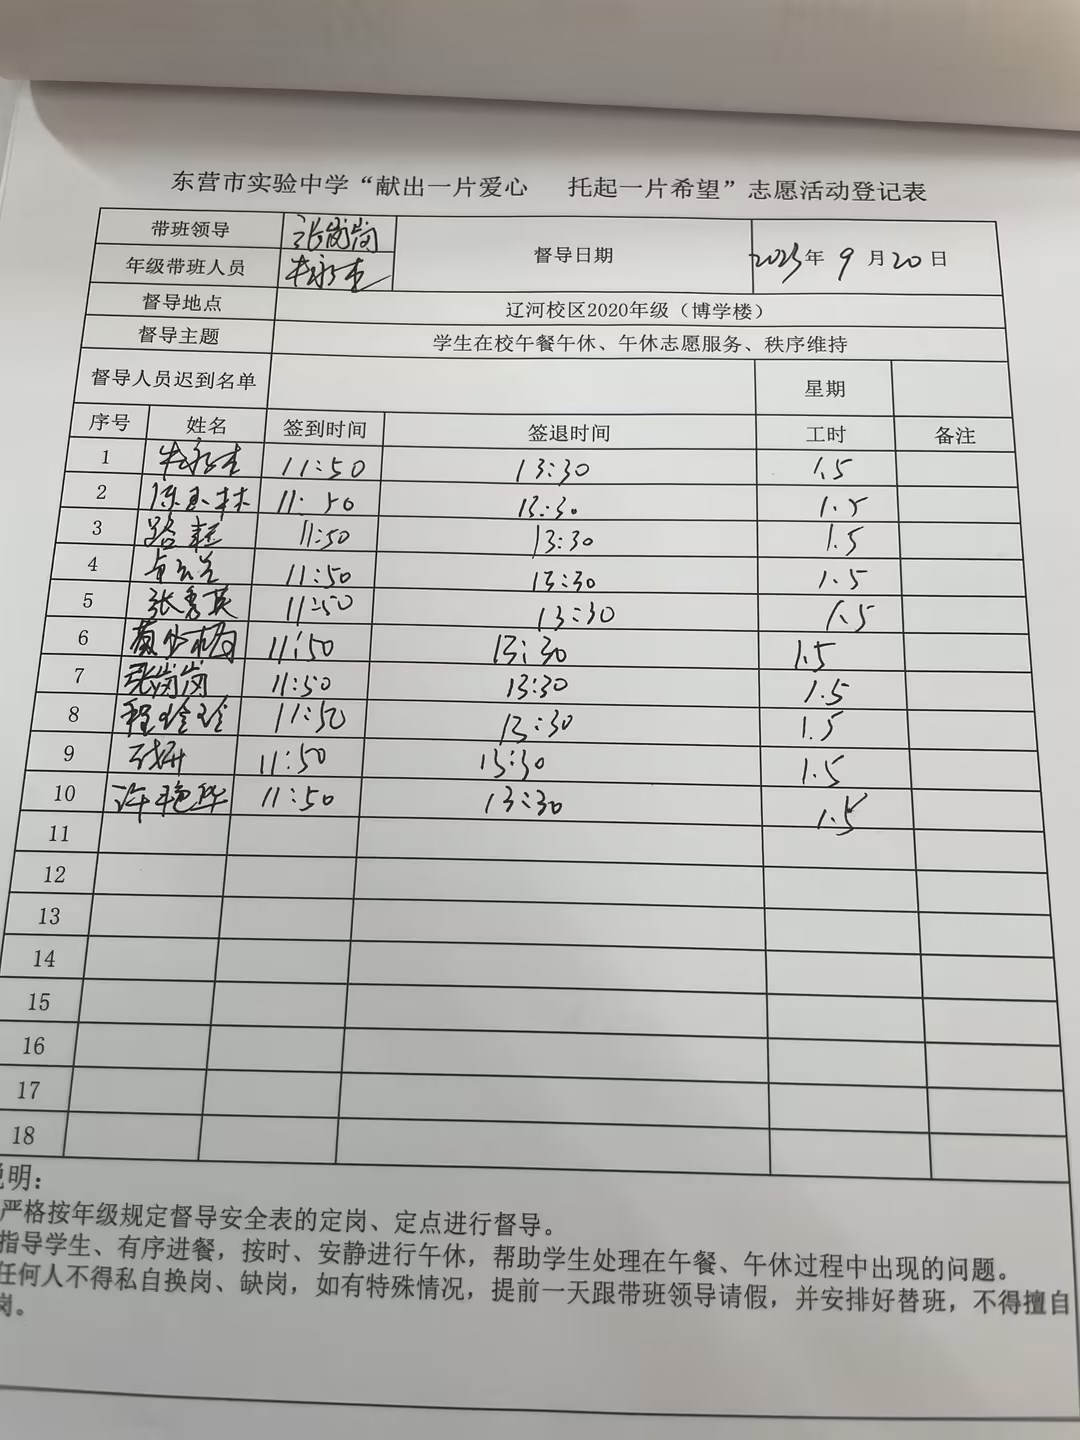 东营市实验中学“献出一片爱心 托起一片希望”志愿活动登记表
带班领导 张岗岗 督导日期 2023年 9 月 20 日
年级带班人员 牛永吉
督导地点 辽河校区2020年级（博学楼）
督导主题 学生在校午餐午休、午休志愿服务、秩序维持
督导人员迟到名单 星期
序号 姓名 签到时间 签退时间 工时 备注
1 牛永吉 11:50 13:30 1.5
2 陈玉林 11:50 13:30 1.5
3 路 11:50 13:30 1.5
4 11:50 13:30 1.5
5 张秀英 11:50 13:30 1.5
6 11:50 13:30 1.5
7 张岗岗 11:50 13:30 1.5
8 程玲玲 11:50 13:30 1.5
9 11:50 13:30 1.5
10 许艳华 11:50 13:30 1.5
11
12
13
14
15
16
17
18
说明：
严格按年级规定督导安全表的定岗、定点进行督导。
指导学生、有序进餐，按时、安静进行午休，帮助学生处理在午餐、午休过程中出现的问题。
任何人不得私自换岗、缺岗，如有特殊情况，提前一天跟带班领导请假，并安排好替班，不得擅自
岗。